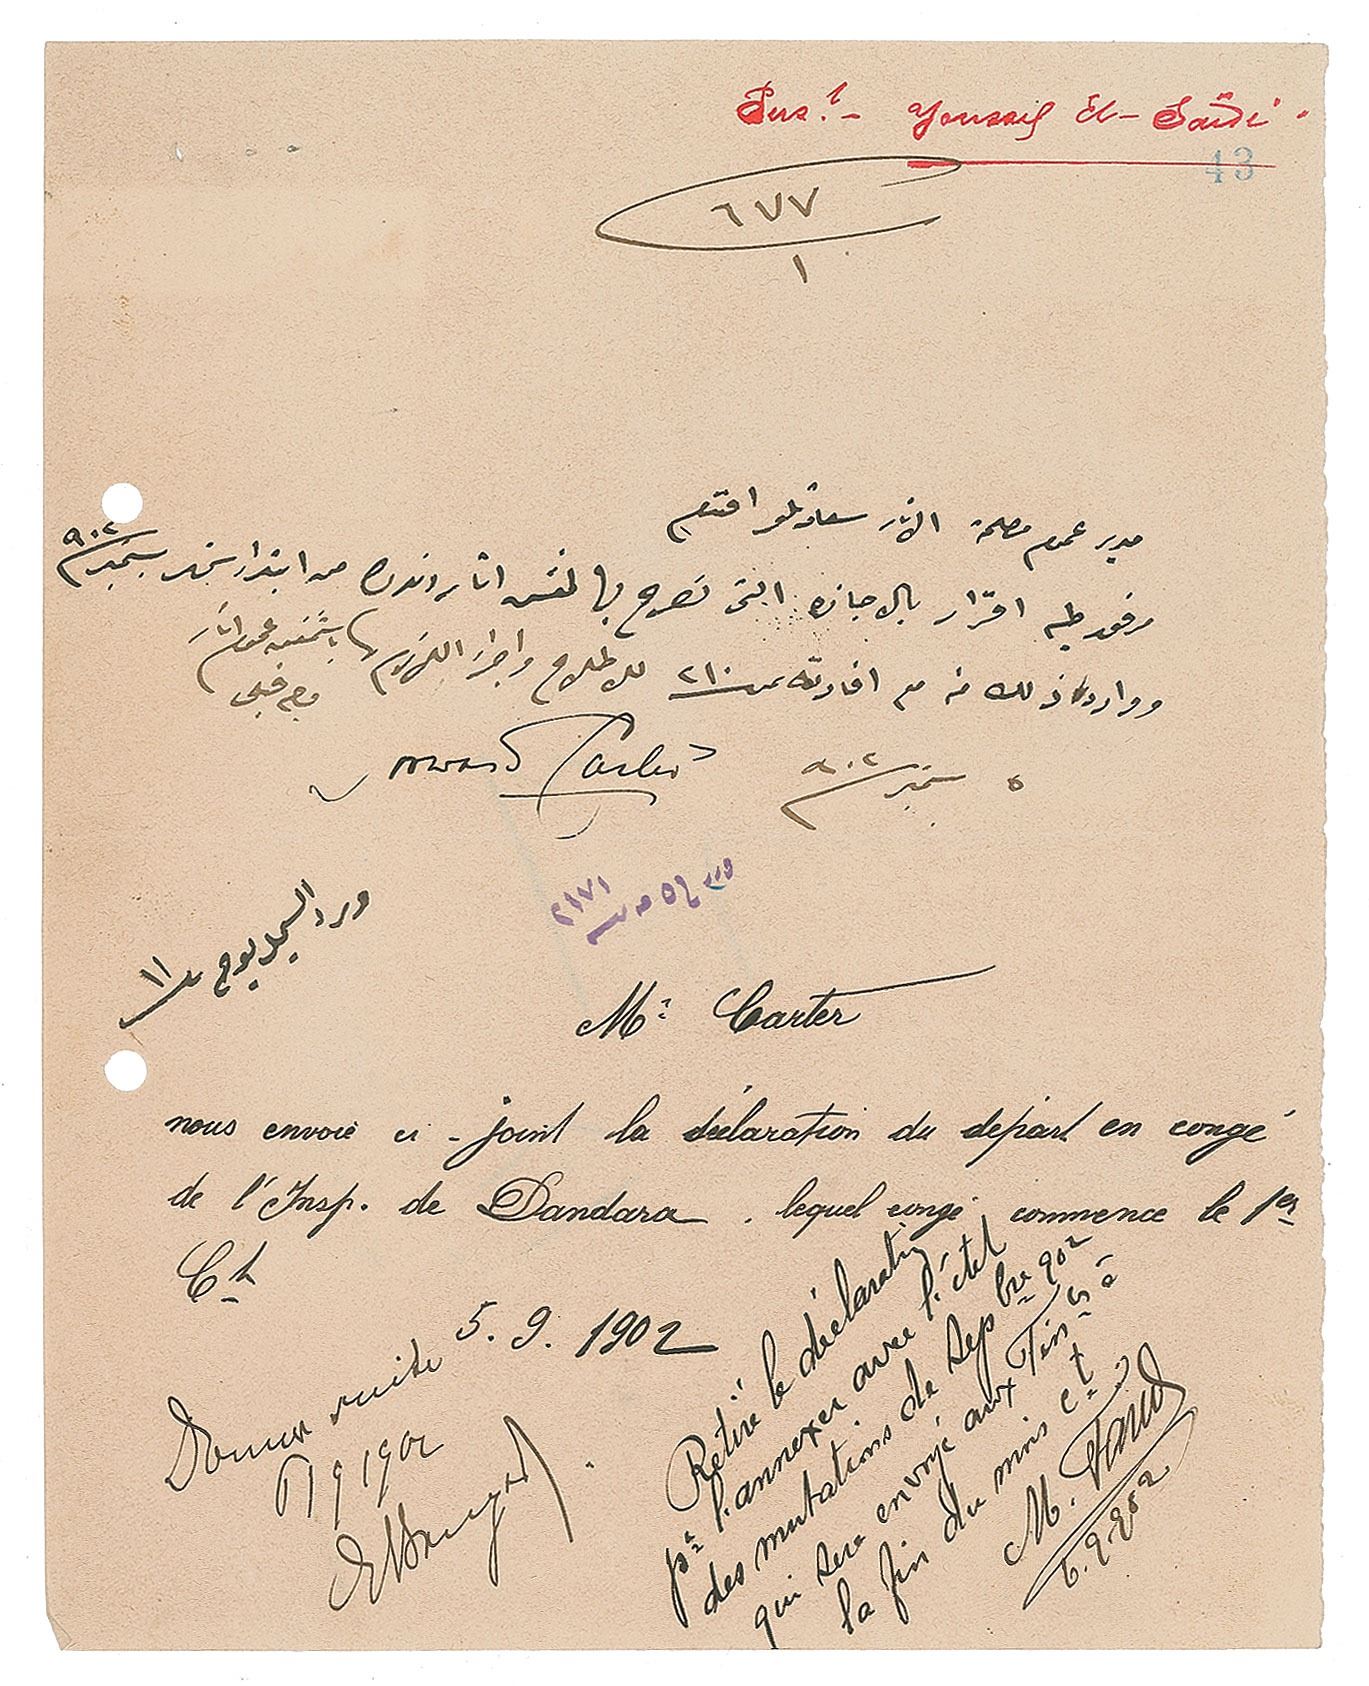 Insp.r - Youssif El-Saïdi.
43
٦٧٧
١
مدير عموم مصلحة الاثار سعادتلو افندم
مرفوق طيه اقرار بالاجازه التى تصرح بها لمفتش اثار دندره من ابتدا شهر سبتمبر ٩٠٢
ووارد ذلك منه مع افادته نمرة ٢١٠ للاطلاع واجرا اللازم
باشمفتش عموم اثار
وجه قبلى
Howard Carter
٥ سبتمبر ٩٠٢
ورد في ٥ منه ٢١٧١
ورد السجل يوم ١١
Mr Carter
nous envoie ci-joint la déclaration du départ en congé
de l'Insp. de Dandara, lequel congé commence le 1er
Ct
5. 9. 1902
Donner suite
6/9 1902
Retiré le déclaration
pr l'annexer avec l'état
des mutations de Sepbre 902
qui sera envoyé aux Fin
la fin du mois ct
M.
6.9.902